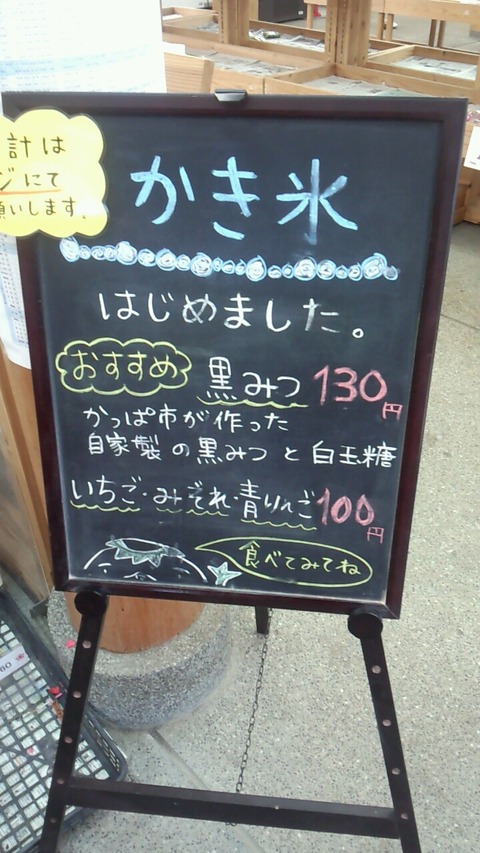 計は
ジにて
願いします。
かき氷
はじめました。
おすすめ 黒みつ 130円
かっぱ市が作った
自家製の黒みつと白玉糖
いちご・みぞれ・青りんご 100円
食べてみてね